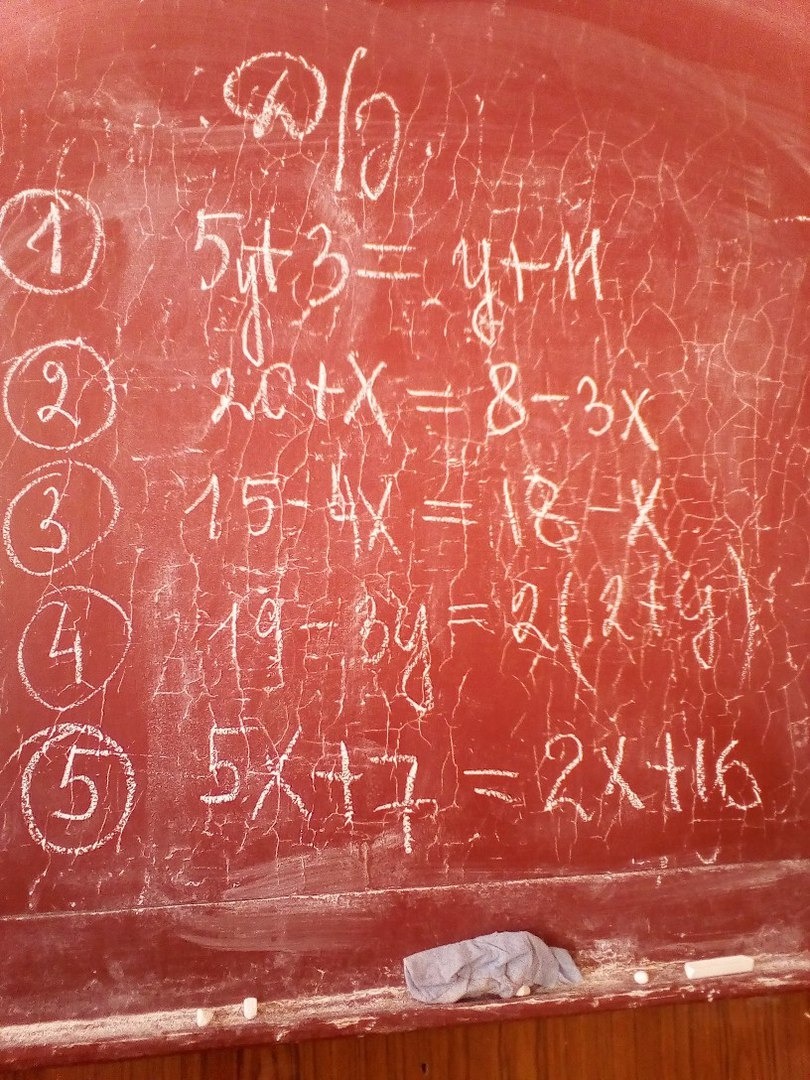 ① 5y+3 = y+11
② 20+x = 8-3x
③ 15-4x = 18-x
④ 19-3y = 2(2+y)
⑤ 5x+7 = 2x+16